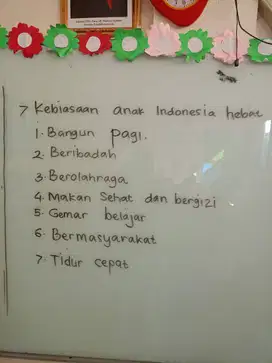 7 Kebiasaan anak Indonesia hebat
1. Bangun pagi.
2. Beribadah
3. Berolahraga
4. Makan Sehat dan bergizi
5. Gemar belajar
6. Bermasyarakat
7. Tidur cepat